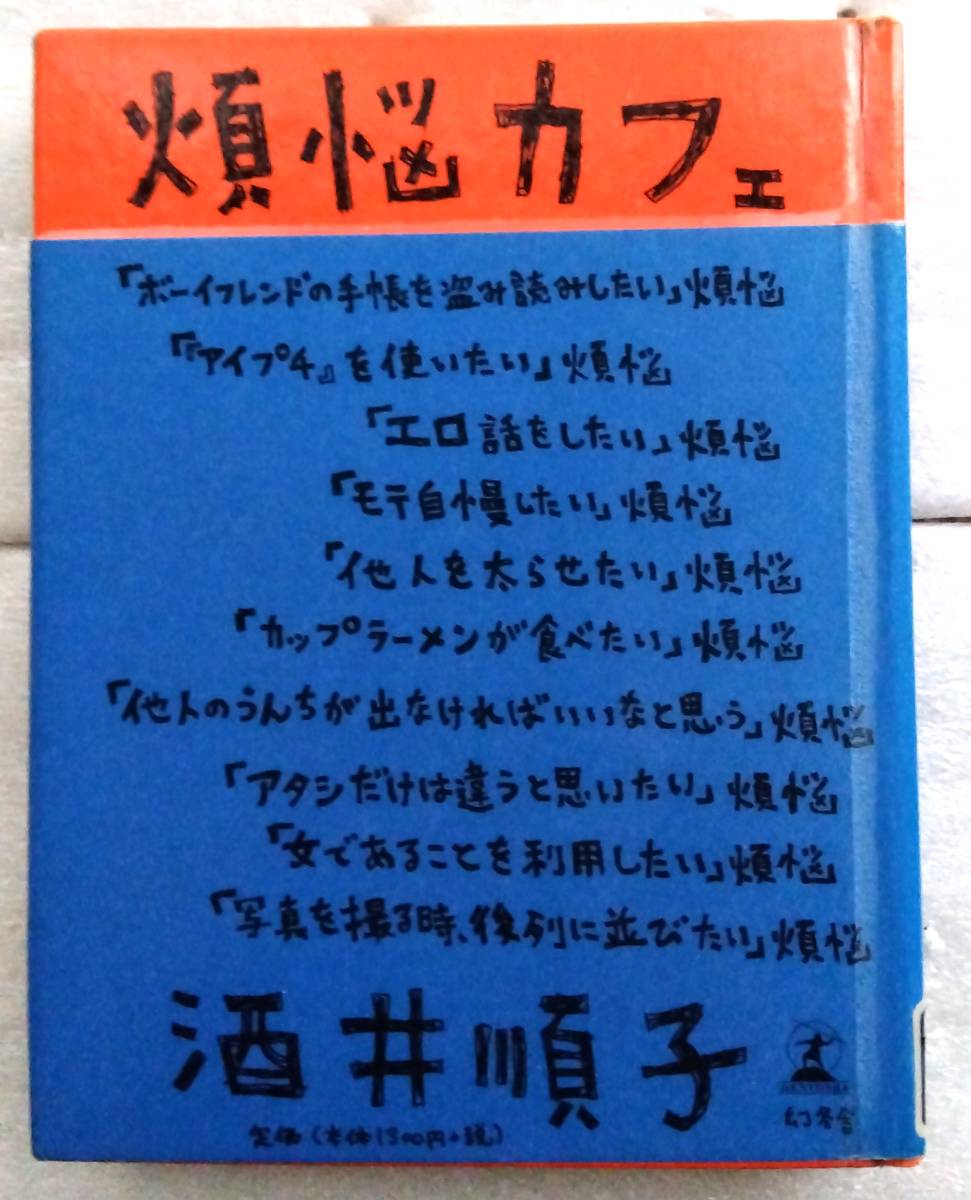 煩悩カフェ
「ボーイフレンドの手帳を盗み読みしたい」煩悩
「『アイプチ』を使いたい」煩悩
「エロ話をしたい」煩悩
「モテ自慢したい」煩悩
「他人を太らせたい」煩悩
「カップラーメンが食べたい」煩悩
「他人のうんちが出なければいいなと思う」煩悩
「アタシだけは違うと思いたい」煩悩
「女であることを利用したい」煩悩
「写真を撮る時、後列に並びたい」煩悩
酒井順子
幻冬舎
定価（本体1300円+税）